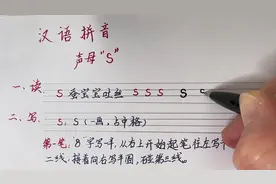 汉语拼音
声母"S"
一、读 S 蚕宝宝吐丝 S S S S s
二、写 S S (一画,占中格)
第一笔: 8字写一半,从右上开始起笔,往左写于
二线,接着向右写半圆,碰第三线。